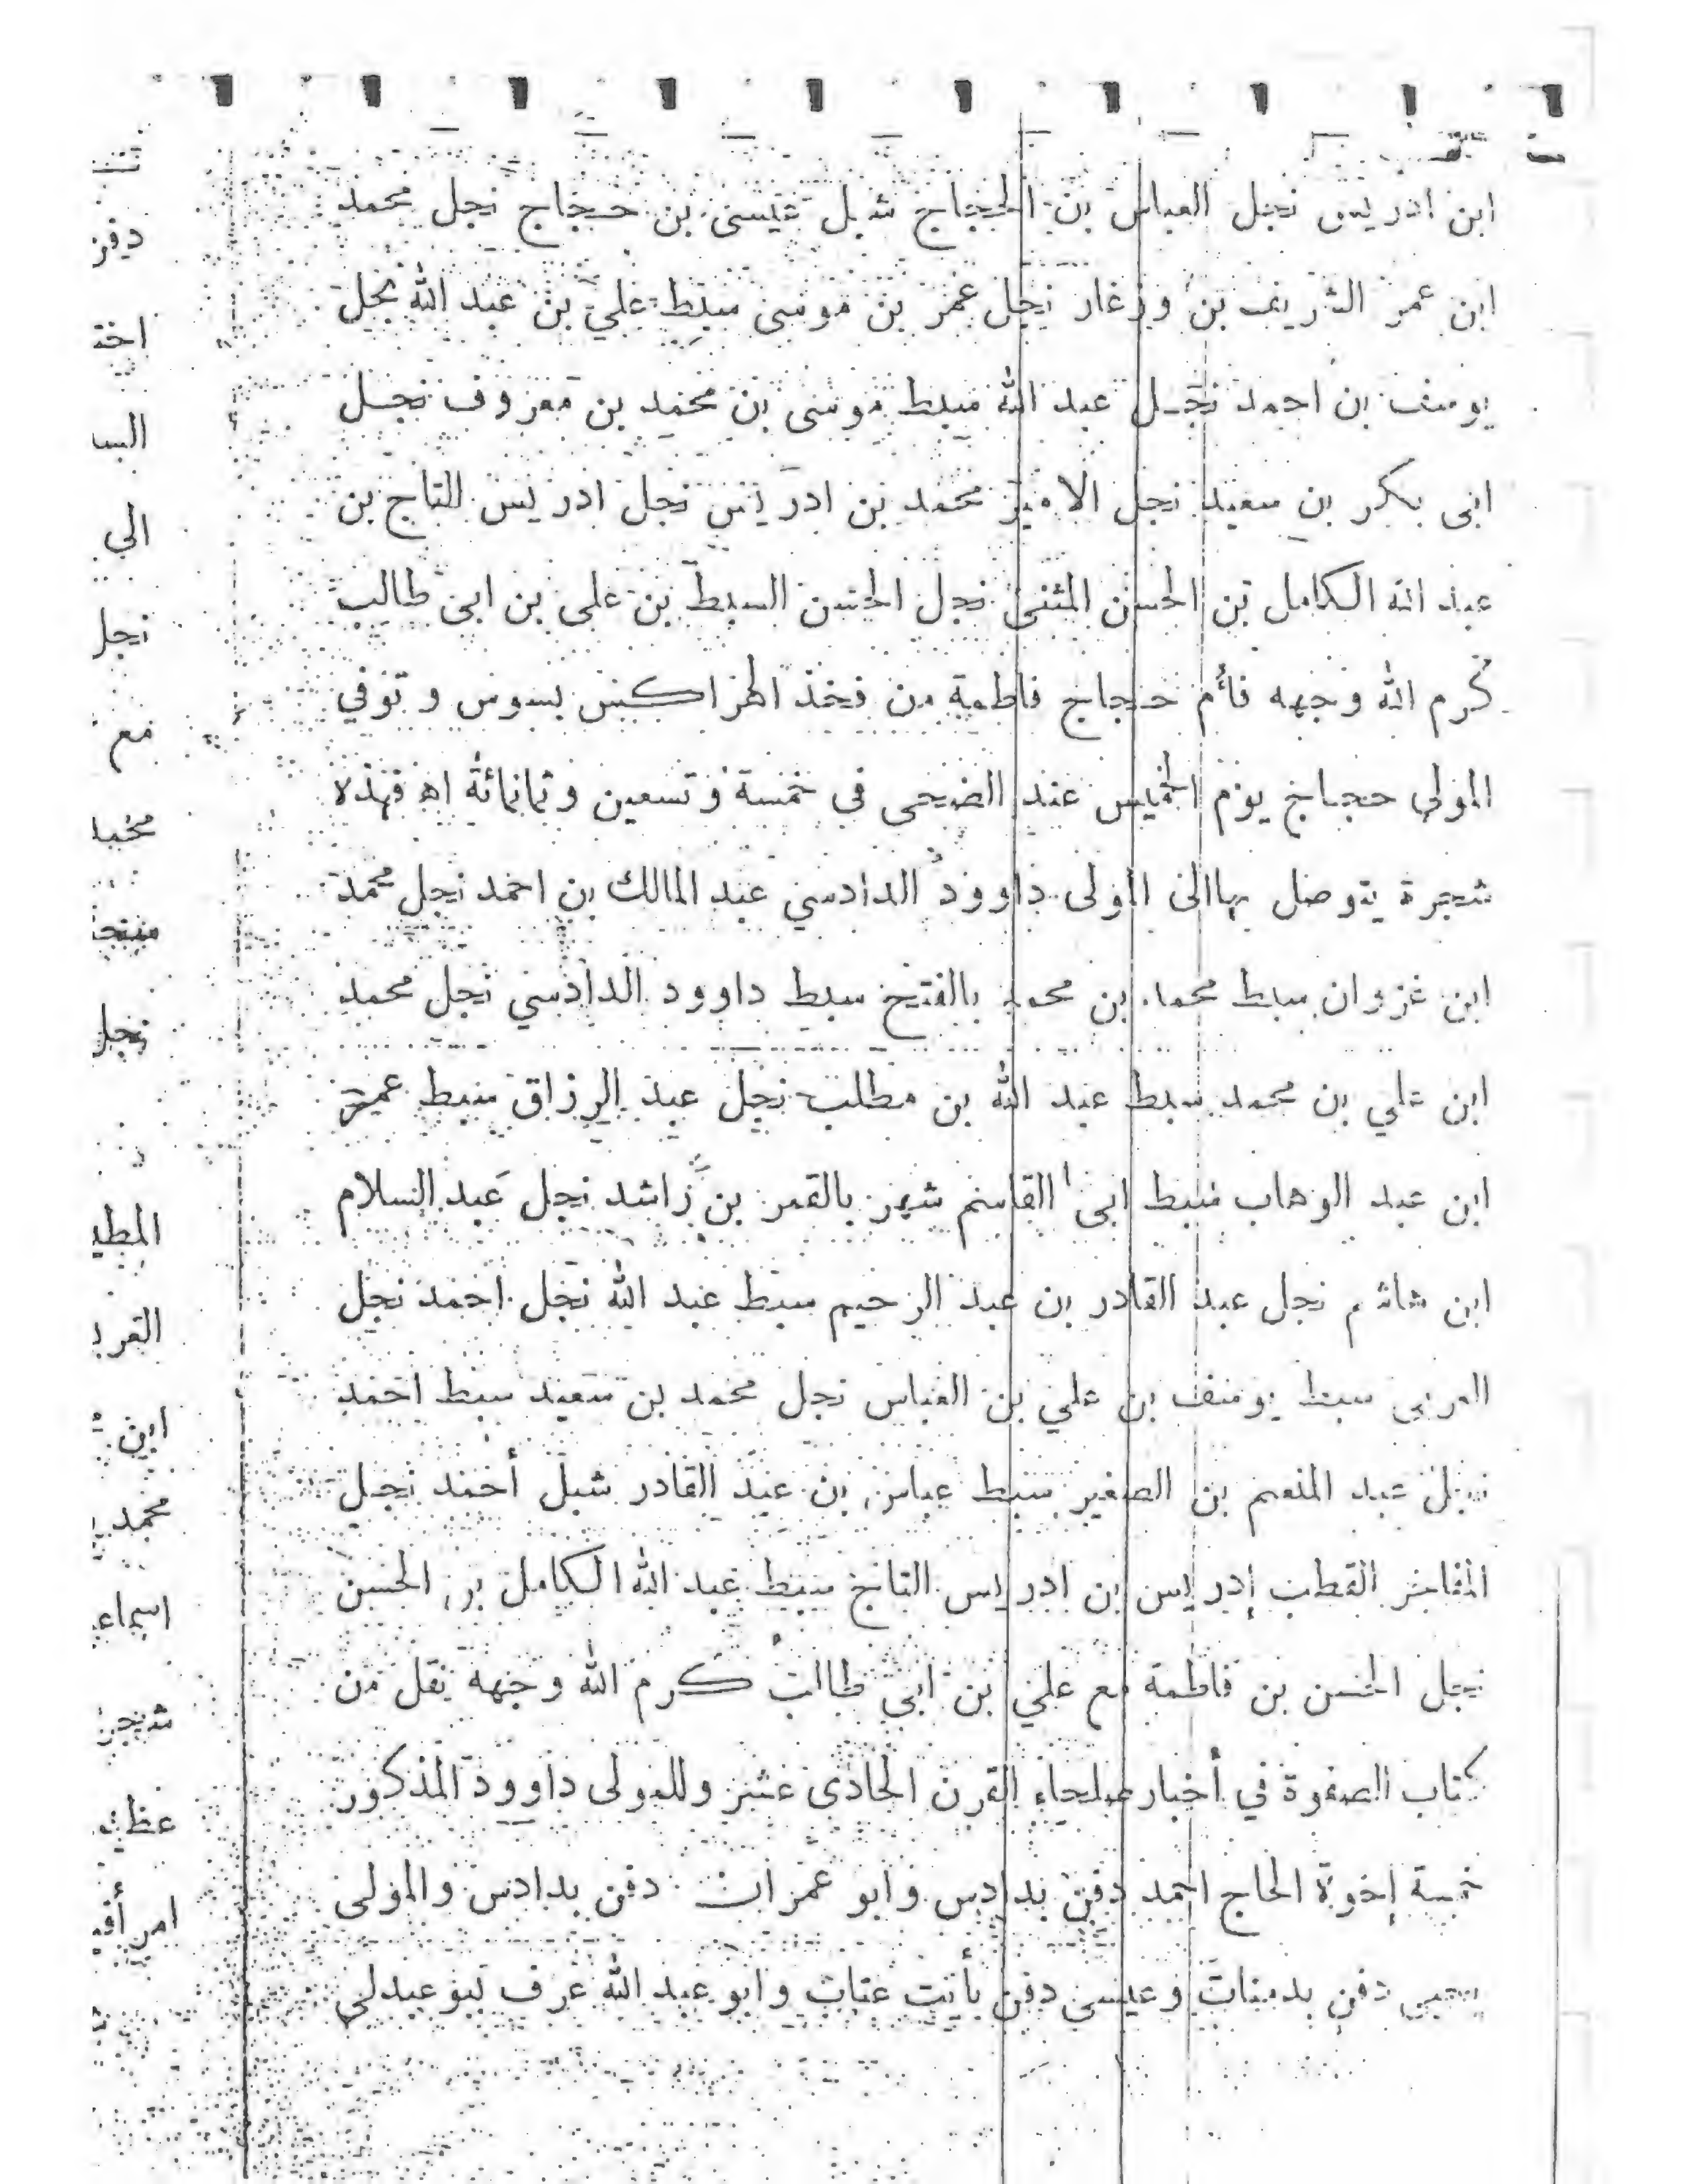 ابن ادريس نجل العباس بن الحجاج شبل عيسى بن حجاج نجل محمد
ابن عمر الشريف بن وزغار نجل عمر بن موسى سبط علي بن عبد الله نجل
يوسف بن احمد نجل عبد الله سبط موسى بن محمد بن معروف نجل
ابى بكر بن سعيد نجل الامير محمد بن ادريس نجل ادريس التاج بن
عبد الله الكامل بن الحسن المثنى نجل الحسن السبط بن على بن ابى طالب
كرم الله وجهه فأم حجاج فاطمة من فخذ الهراكيس بسوس وتوفي
المولى حجاج يوم الخميس عند الضحى فى خمسة وتسعين وثمانمائة اه فهذه
شجرة يتوصل بها الى المولى داوود الدادسي عبد المالك بن احمد نجل محمد
ابن غزوان سبط محمد بن محمد بالفتح سبط داوود الدادسي نجل محمد
ابن علي بن محمد سبط عبد الله بن مطلب نجل عبد الرزاق سبط عمر
ابن عبد الوهاب سبط ابى القاسم شهر بالقمر بن راشد نجل عبد السلام
ابن هاشم نجل عبد القادر بن عبد الرحيم سبط عبد الله نجل احمد نجل
العربى سبط يوسف بن علي بن العباس نجل محمد بن سعيد سبط احمد
نجل عبد المنعم بن الصغير سبط عباس بن عبد القادر شبل أحمد نجل
المفاخر القطب إدريس بن ادريس التاج سبط عبد الله الكامل بن الحسن
نجل الحسن بن فاطمة مع علي بن ابي طالب كرم الله وجهه نقل من
كتاب الصفوة في أخبار صلحاء القرن الحادى عشر وللمولى داوود المذكور
خمسة إخوة الحاج احمد دفن بدادس وابو عمران دفن بدادس والمولى
يحيى دفن بدمنات وعيسى دفن بأيت عتاب وابو عبد الله عرف ببوعبدلي
دفن
اخت
الس
الي
نجل
مع
نجل
المطي
ابن
محمد
اسماع